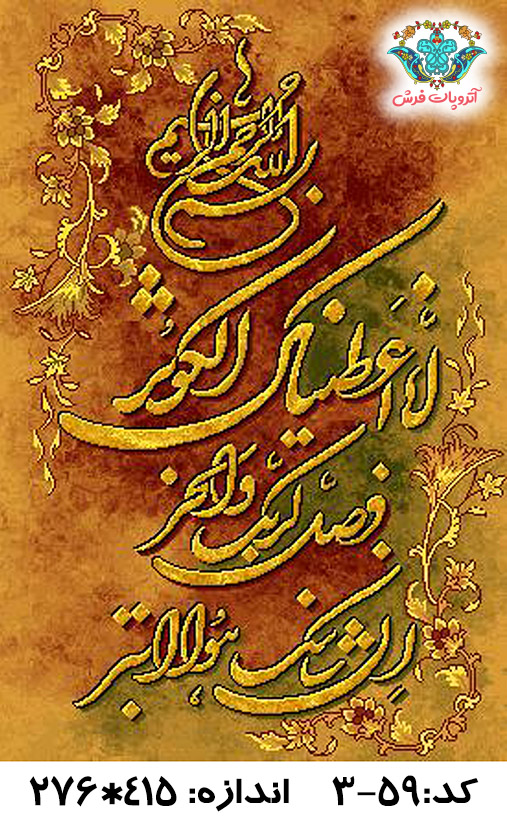 آتروپات فرش
بسم الله الرحمن الرحیم
انا اعطیناک الکوثر
فصل لربک وانحر
ان شانئک هو الابتر
کد:۵۹-۳ اندازه: ۴۱۵*۲۷۶